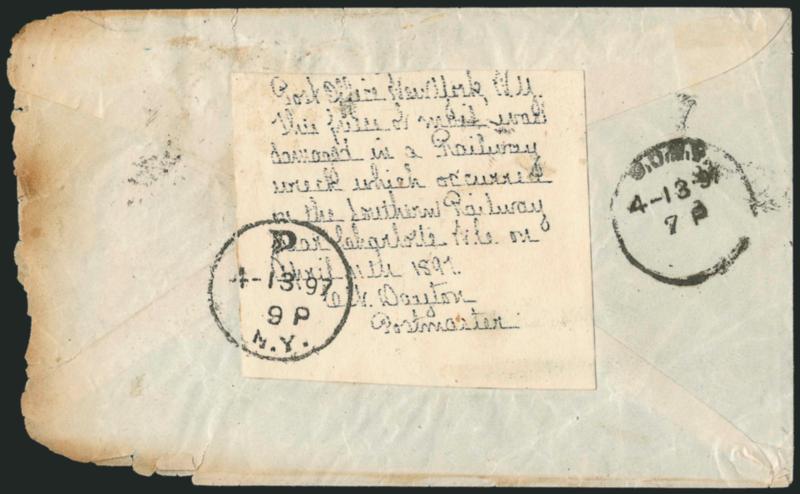 Post Office New York, N.Y.
This piece of mail was
damaged in a Railway
wreck which occurred
on the Southern Railway
near Charlotte N.C. on
April 11th 1897.
C.W. Dayton
Postmaster
D
4-13-97
9 P
N.Y.
4-13-97
7 P